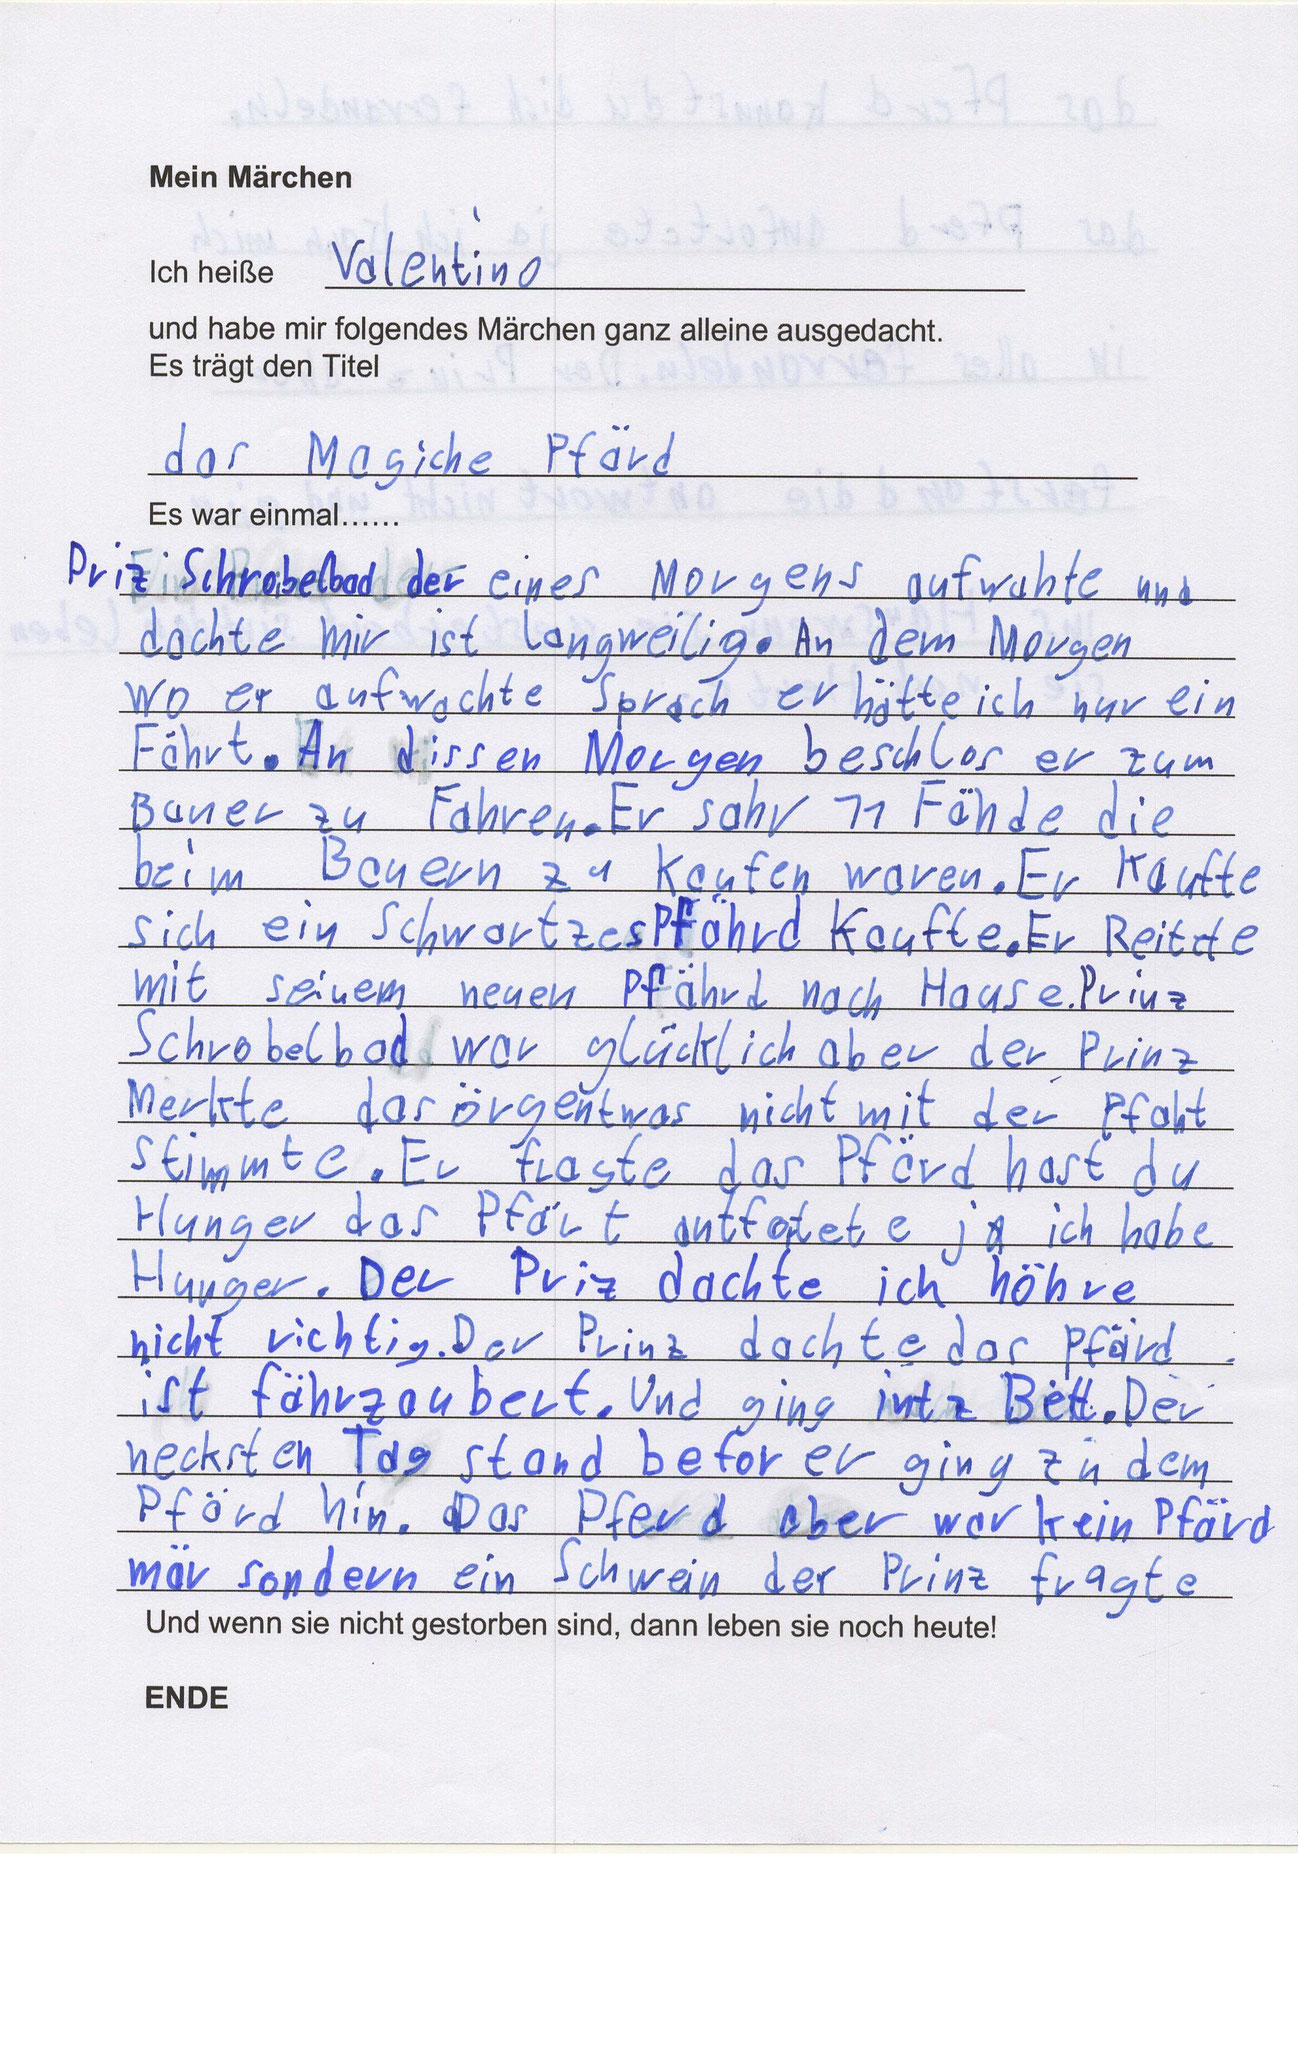 Mein Märchen
Ich heiße Valentino
und habe mir folgendes Märchen ganz alleine ausgedacht.
Es trägt den Titel
das Magiche Pfärd
Es war einmal......
Priz Schrobelbad der eines Morgens aufwahte und
dachte mir ist langweilig. An dem Morgen
wo er aufwachte sprach er hätte ich nur ein
Fährt. An dissen Morgen beschlos er zum
Bauer zu Fahren. Er sahr 11 Fähde die
beim Bauern zu kaufen waren. Er kaufte
sich ein Schwartzes Pfährd kaufte. Er Reitte
mit seinem neuen Pfährd nach Hause. Prinz
Schrobelbad war glücklich aber der Prinz
Merkte das örgentwas nicht mit der Pfaht
stimmte. Er fragte das Pfärd hast du
Hunger das Pfärt antfotete ja ich habe
Hunger. Der Priz dachte ich höhre
nicht richtig. Der Prinz dachte das Pfärd
ist fährzaubert. Und ging intz Bett. Der
necksten Tag stand befor er ging zu dem
Pfärd hin. Das Pferd aber war kein Pfärd
mär sondern ein Schwein der Prinz fragte
Und wenn sie nicht gestorben sind, dann leben sie noch heute!
ENDE